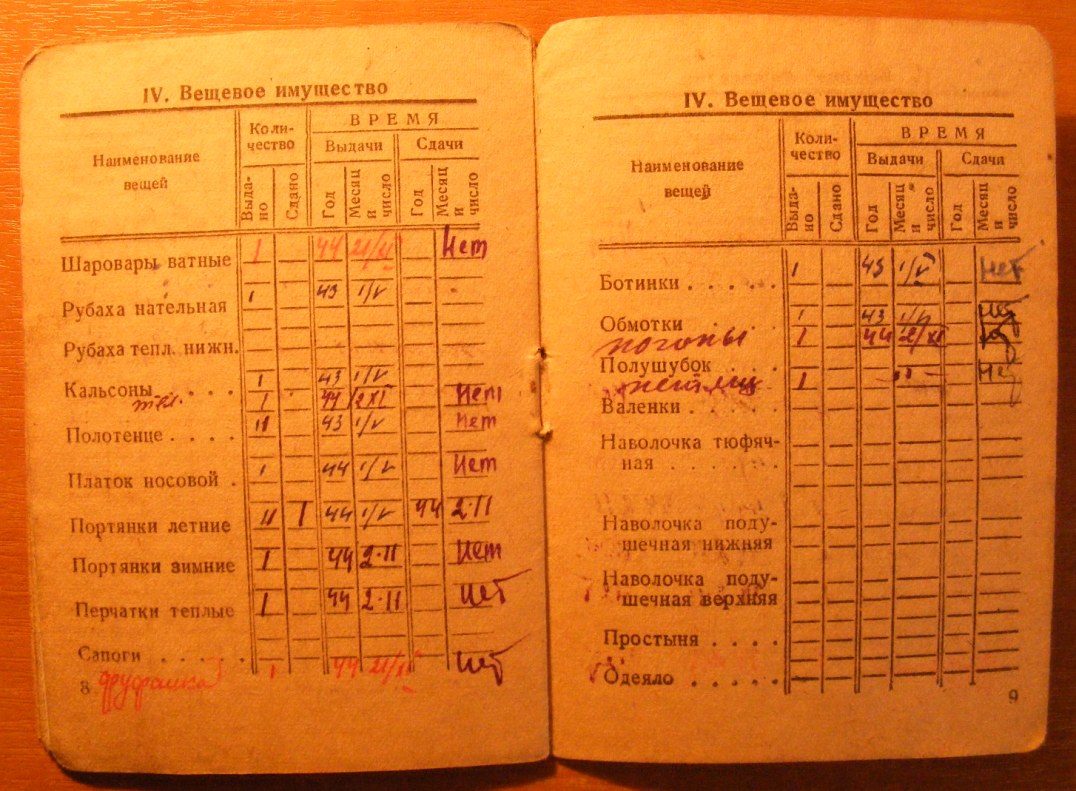 IV. Вещевое имущество
Наименование вещей
Коли-
чество
ВРЕМЯ
Выдачи
Сдачи
Выда-
но
Сдано
Год
Месяц и число
Год
Месяц и число
Шаровары ватные 1 44 21/XI Нет
Рубаха нательная 1 43 1/V
Рубаха тепл. нижн.
Кальсоны . . . . 1 43 1/V
тёп. 1 44 2 XI Нет
Полотенце . . . . II 43 1/V Нет
Платок носовой . 1 44 1/V Нет
Портянки летние II I 44 1/V 44 2·II
Портянки зимние 1 44 2·II Нет
Перчатки теплые 1 44 2·II Нет
Сапоги . . . . .
8 1 44 21/XI Нет
IV. Вещевое имущество
Наименование
вещей
Коли-
чество
ВРЕМЯ
Выдачи
Сдачи
Выда-
но
Сдано
Год
Месяц и число
Год
Месяц и число
Ботинки . . . . . 1 43 1/V Нет
Обмотки . . . . 1 43 1/V
погоны 1 44 2/XI
Полушубок . . .
петлиц 1 -"- Нет
Валенки . . . . .
Наволочка тюфяч-
ная . . . . .
Наволочка поду-
шечная нижняя
Наволочка поду-
шечная верхняя
Простыня . . . .
Одеяло . . . . .
9